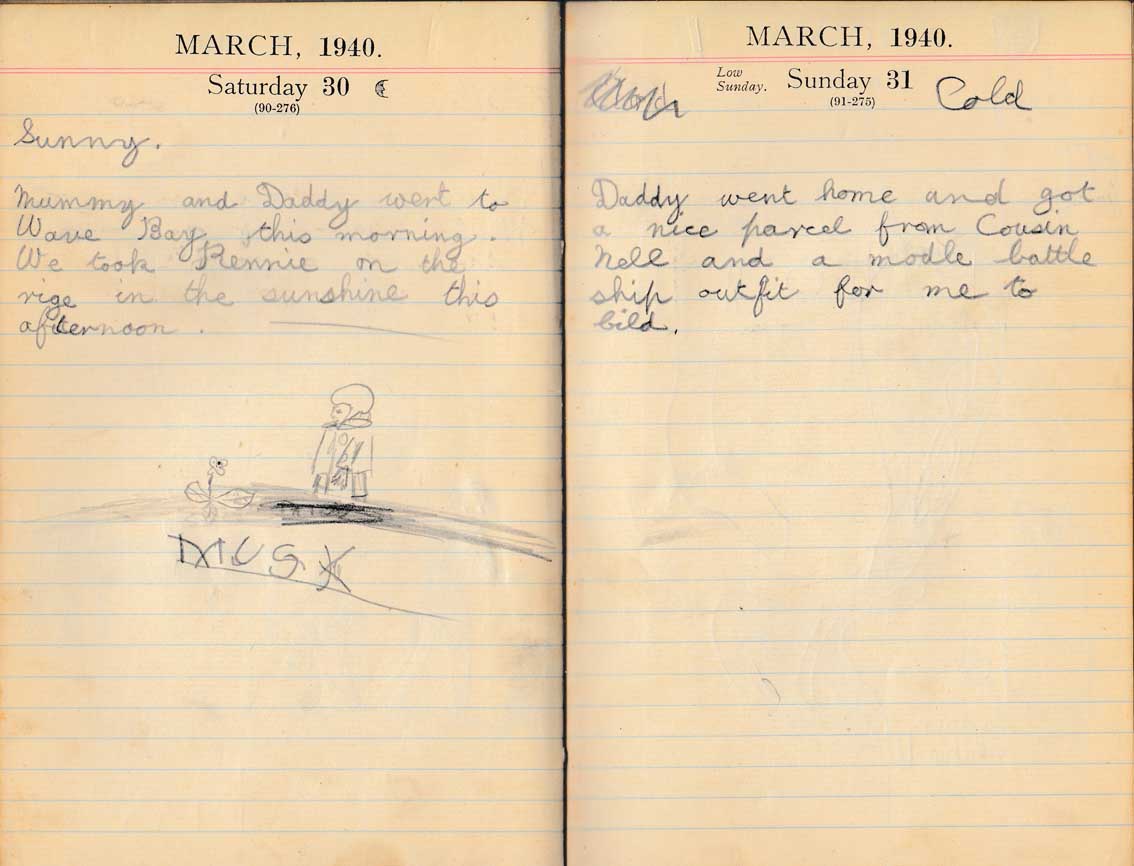 MARCH, 1940.
Saturday 30
(90-276)
Sunny.
Mummy and Daddy went to
Wave Bay this morning.
We took Rennie on the
rige in the sunshine this
afternoon.
MUSK
MARCH, 1940.
Low
Sunday.
Sunday 31
(91-275)
Cold
Daddy went home and got
a nice parcel from Cousin
Nell and a modle battle
ship outfit for me to
bild.